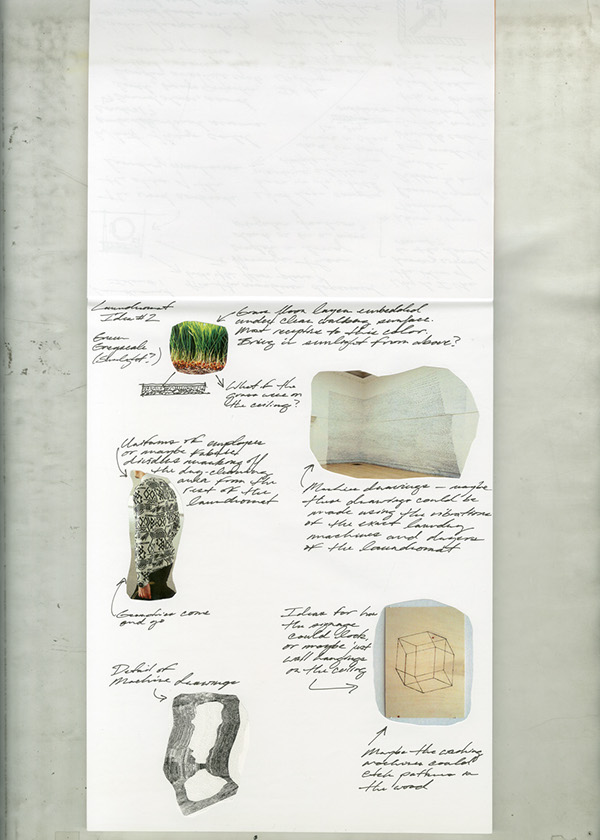 Laundromat
Idea #2
Green
Greyscale
(Sunlight?)
Grass floor layer embedded
under clear walking surface.
Most receptive to this color.
Bring in sunlight from above?
What if the
grass were on
the ceiling?
Uniforms of employees
or maybe fabric
dividers marking off
the dry-cleaning
area from the
rest of the
laundromat
Machine drawings – maybe
these drawings could be
made using the vibrations
of the exact laundry
machines and dryers
of the laundromat
Graphics come
and go
Ideas for how
the signage
could look,
or maybe just
wall hangings
on the ceiling
Detail of
Machine drawings
Maybe the washing
machines could
etch patterns in
the wood